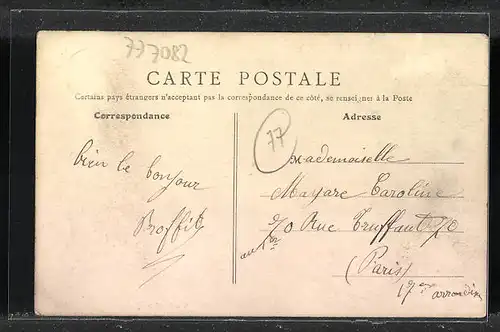 777082
CARTE POSTALE
Certains pays étrangers n'acceptant pas la correspondance de ce côté, se renseigner à la Poste
Correspondance
Adresse
77
bien le
bonjour
Proffit
Mademoiselle
Mayare Caroline
70 Rue Truffaut 70
au 1er
(Paris)
17e arrondim